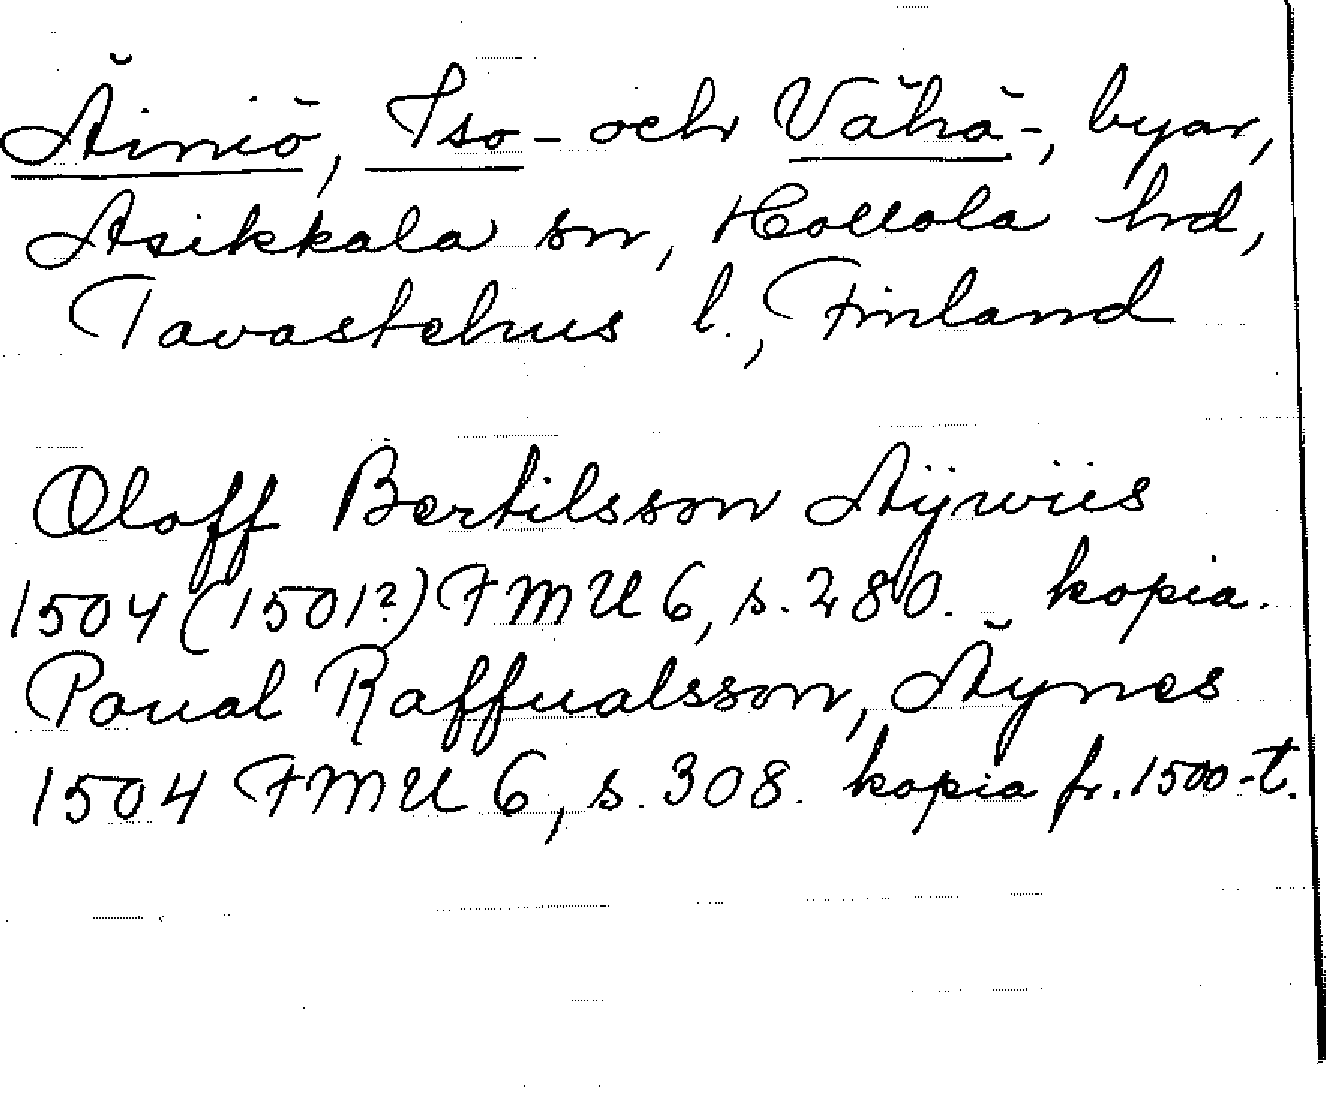 Äiniö, Iso- och Vähä-, byar,
Asikkala sn, Hollola hrd,
Tavastehus l., Finland
Oloff Bertilsson
1504 (1501?) FMU 6, s. 280. kopia.
Poual Raffualsson, Äynes
1504 FMU 6, s. 308. kopia fr. 1500-t.